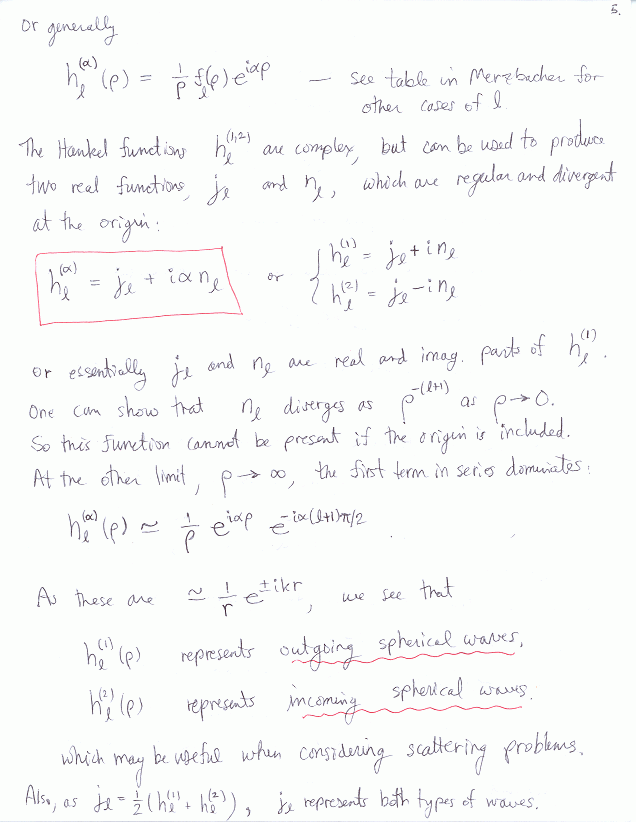 5.
Or generally
hₗ⁽ᵅ⁾(ρ) = 1/ρ fₗ(ρ) e^{iαρ} — see table in Merzbacher for
other cases of l.
The Hankel functions hₗ^(1,2) are complex, but can be used to produce
two real functions, jₗ and nₗ, which are regular and divergent
at the origin:
hₗ^(α) = jₗ + iα nₗ or { hₗ^(1) = jₗ + i nₗ
hₗ^(2) = jₗ - i nₗ
or essentially jₗ and nₗ are real and imag. parts of hₗ^(1).
One can show that nₗ diverges as ρ^{-(l+1)} as ρ → 0.
So this function cannot be present if the origin is included.
At the other limit, ρ → ∞, the first term in series dominates:
hₗ^(α)(ρ) ≃ 1/ρ e^{iαρ} e^{-iα(l+1)π/2}
As these are ≃ 1/r e^{±ikr}, we see that
hₗ^(1)(ρ) represents outgoing spherical waves,
hₗ^(2)(ρ) represents incoming spherical waves.
which may be useful when considering scattering problems.
Also, as jₗ = 1/2 (hₗ^(1) + hₗ^(2)), jₗ represents both types of waves.